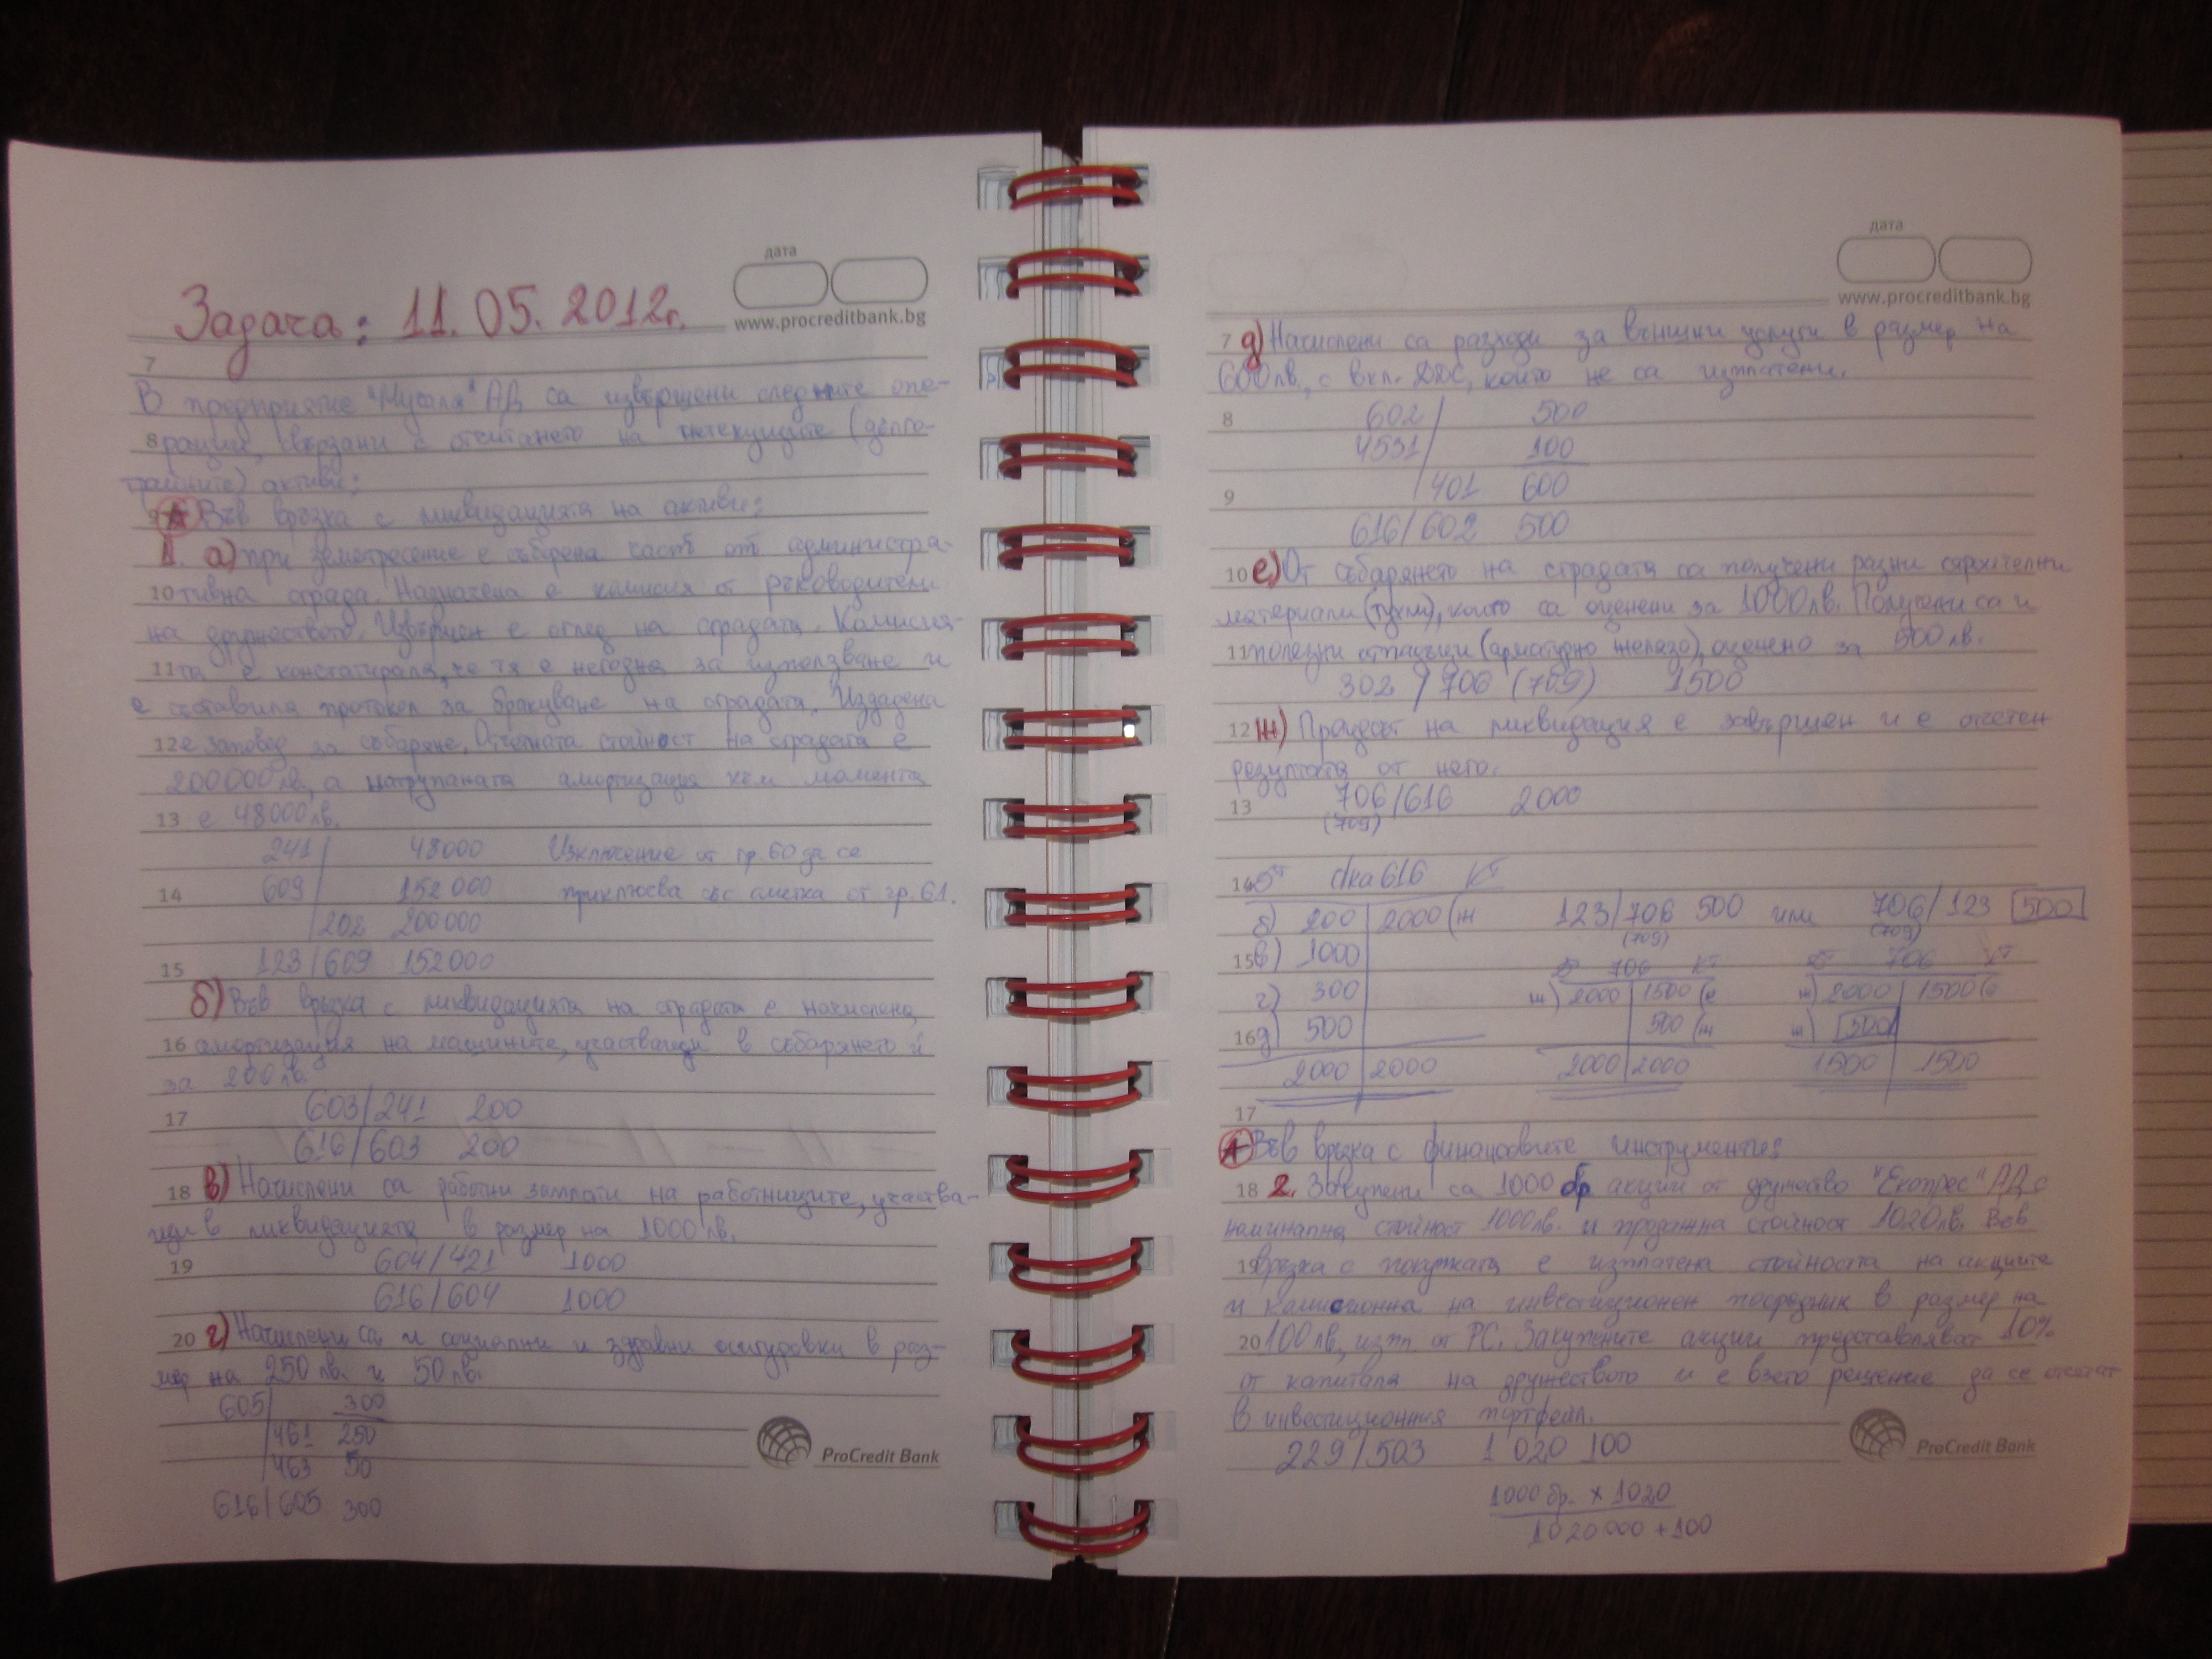 дата
www.procreditbank.bg
Задача: 11. 05. 2012г.
7
В предприятие "Мусала" АД са извършени следните опе-
8 рации, свързани с отчитането на нетекущите (дълго-
трайните) активи:
9 Във връзка с ликвидацията на активи:
1. а) При земетресение е съборена част от администра-
10 тивна сграда. Назначена е комисия от ръководители
на дружеството. Извършен е оглед на сградата. Комисия-
11 та е констатирала, че тя е негодна за използване и
е съставила протокол за бракуване на сградата. Издадена
12 е заповед за събаряне. Отчетната стойност на сградата е
200 000 лв, а натрупаната амортизация към момента
13 е 48000 лв.
241/ 48000 Изключение от гр. 60 да се
14 609 152 000 приключва със сметка от гр. 61.
/202 200 000
15 123/609 152 000
б) Във връзка с ликвидацията на сградата е начислена
16 амортизация на машините, участващи в събарянето ѝ
за 200 лв.
17 603/241 200
616/603 200
18 в) Начислени са работни заплати на работниците, участва-
щи в ликвидацията в размер на 1000 лв.
19 604/421 1000
616/604 1000
20 г) Начислени са и социални и здравни осигуровки в раз-
мер на 250 лв. и 50 лв.
605/ 300
/461 250
/463 50
616/605 300
ProCredit Bank
дата
www.procreditbank.bg
7 д) Начислени са разходи за външни услуги в размер на
600 лв, с вкл. ДДС, които не са изплатени.
8 602/ 500
4531/ 100
9 /401 600
616/602 500
10 е) От събарянето на сградата са получени разни строителни
материали (тухли), които са оценени за 1000 лв. Получени са и
11 полезни отпадъци (арматурно желязо), оценено за 500 лв.
302/706 (709) 1500
12 ж) Процесът на ликвидация е завършен и е отчетен
резултата от него.
13 706/616 2000
(709)
14 Дт с/ка 616 Кт
б) 200 2000 (ж 123/706 500 или 706/123 500
(709) (709)
15 в) 1000 Дт 706 Кт Дт 706 Кт
г) 300 ж) 2000 1500 (е ж) 2000 1500 (е
16 д) 500 500 (ж ж) 500
2000 2000 2000 2000 1500 1500
17
Във връзка с финансовите инструменти:
18 2. Закупени са 1000 бр акции от дружество "Експрес" АД с
номинална стойност 1000 лв. и продажна стойност 1020 лв. Във
19 връзка с покупката е изплатена стойността на акциите
и комисионна на инвестиционен посредник в размер на
20 100 лв, изпл. от РС. Закупените акции представляват 10%
от капитала на дружеството и е взето решение да се отчитат
в инвестиционния портфейл.
229/503 1 020 100
1000 бр. x 1020
1 020 000 + 100
ProCredit Bank